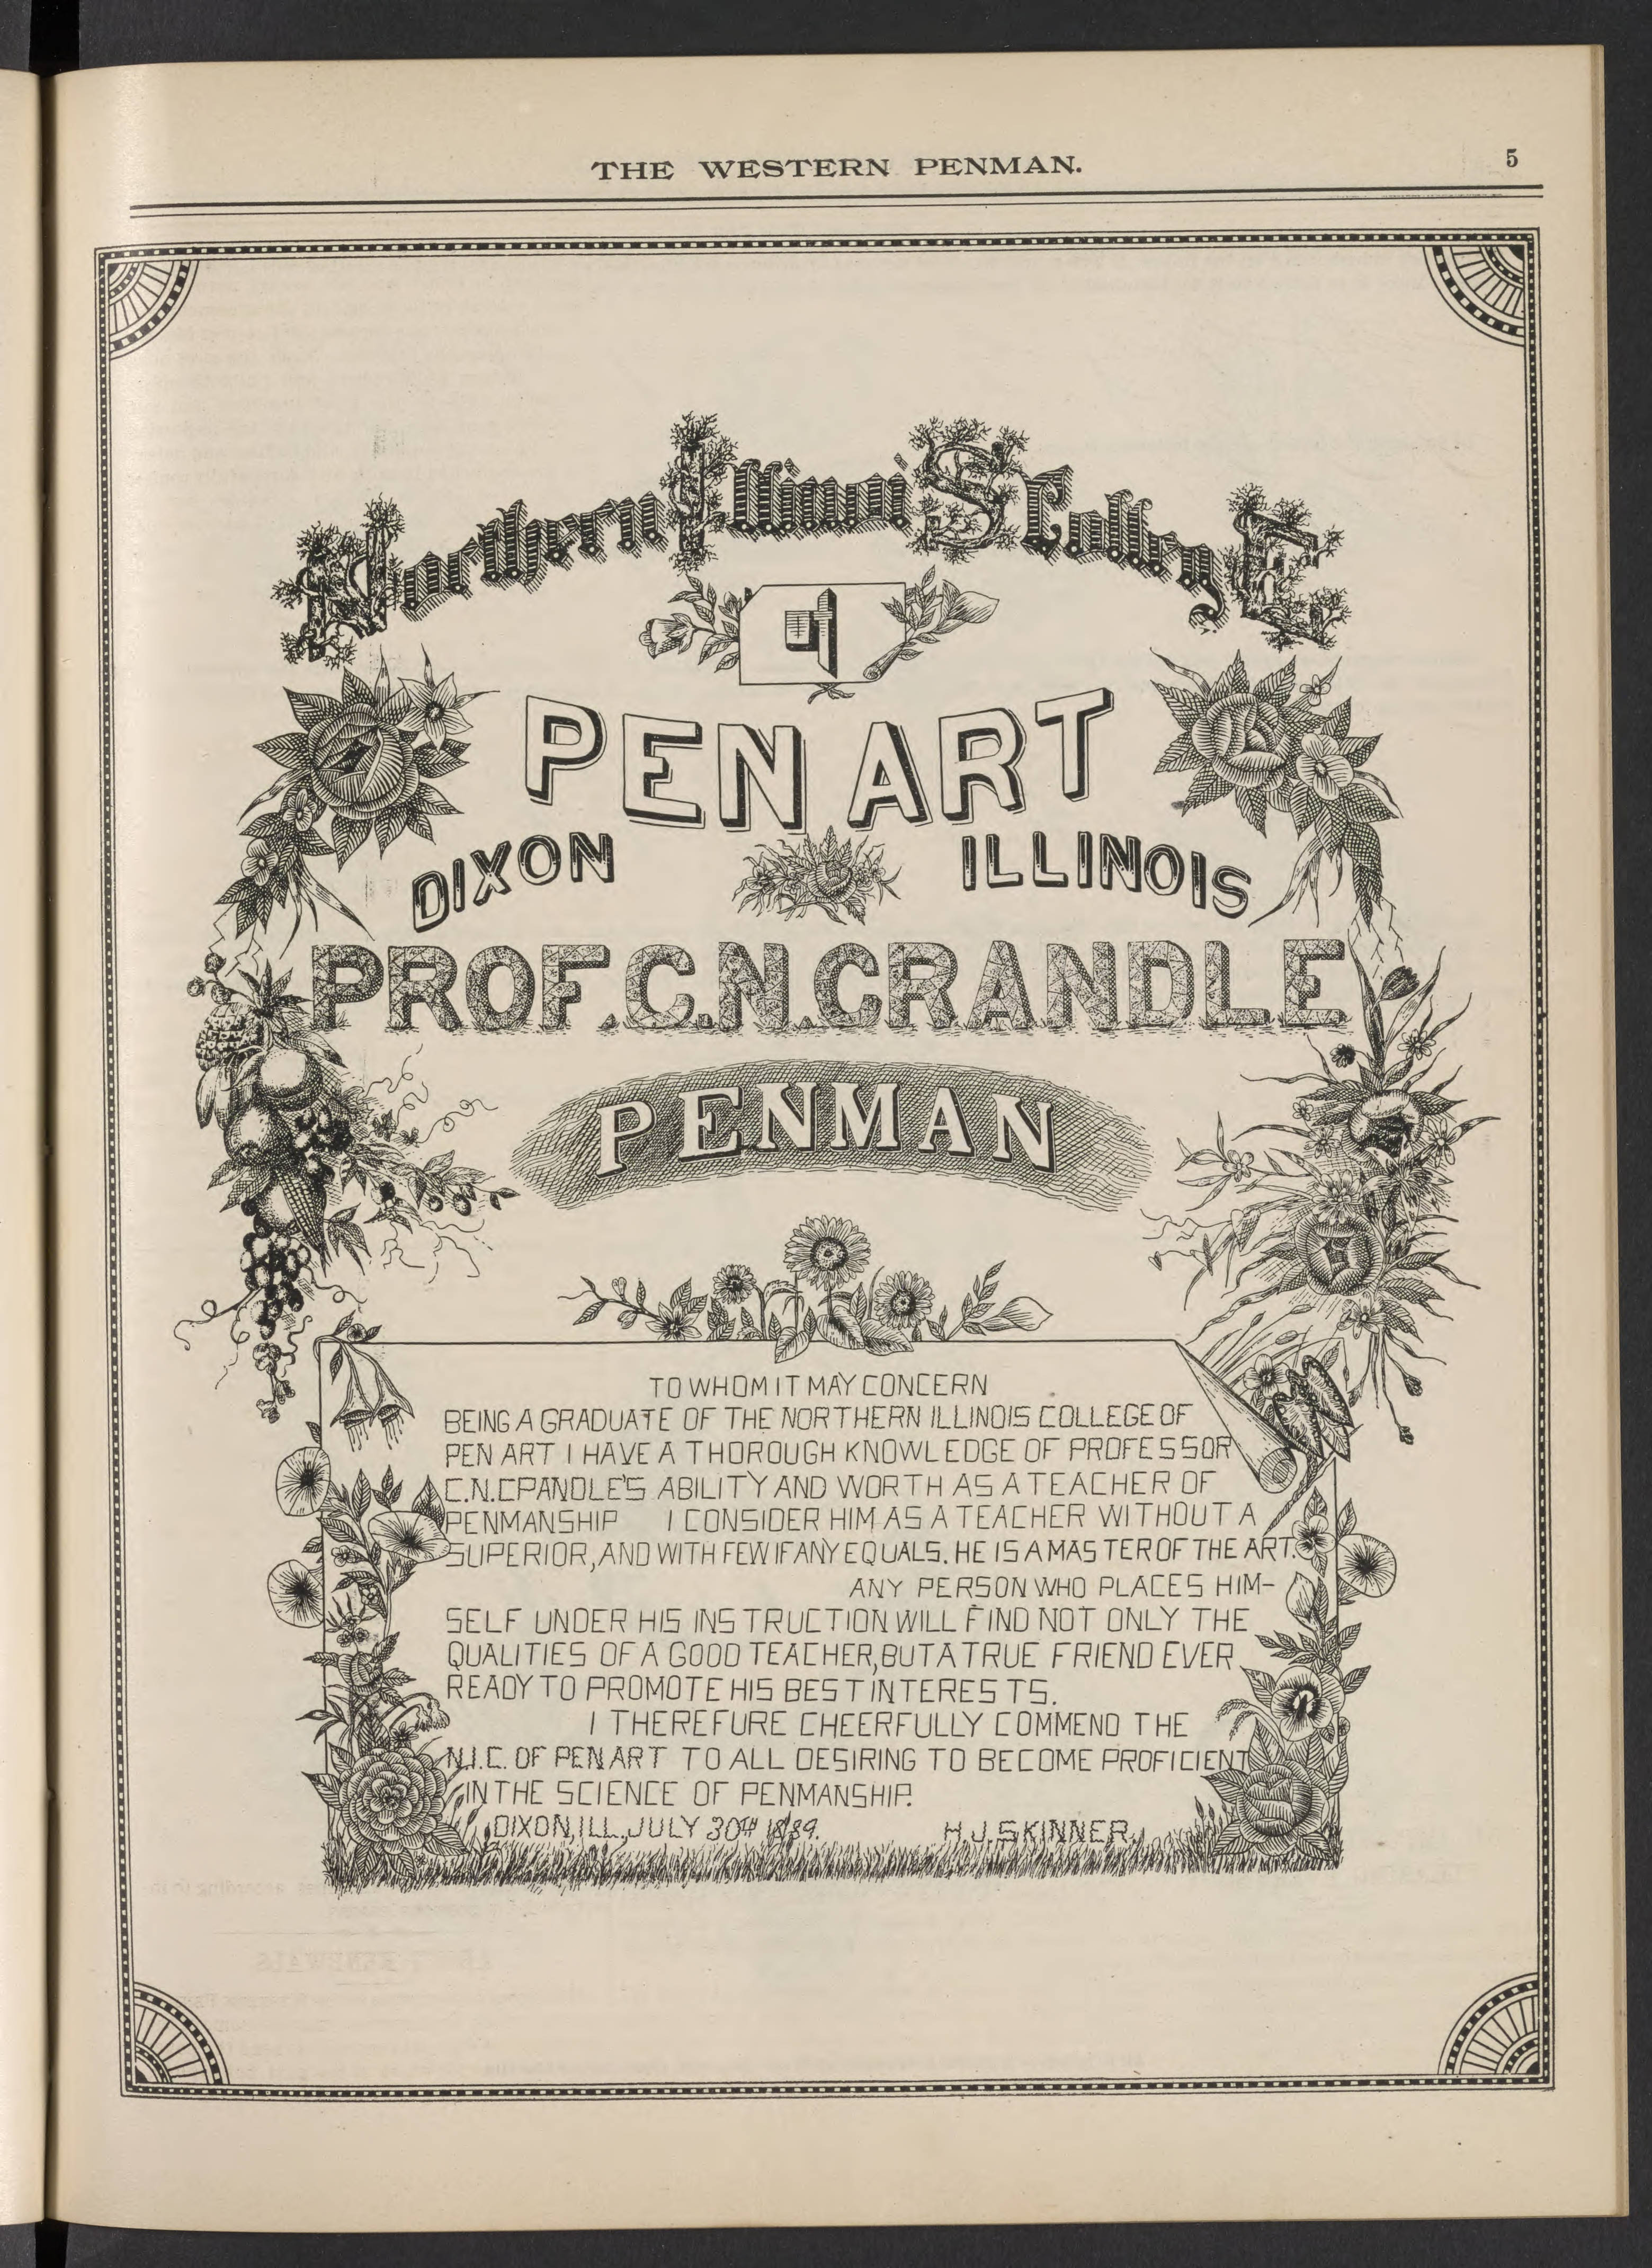 THE WESTERN PENMAN.
5
Northern IllinoiS CollegE
of
PEN ART
DIXON ILLINOIS
PROF. C. N. CRANDLE
PENMAN
TO WHOM IT MAY CONCERN
BEING A GRADUATE OF THE NORTHERN ILLINOIS COLLEGE OF
PEN ART I HAVE A THOROUGH KNOWLEDGE OF PROFESSOR
C.N.CPANDLE'S ABILITY AND WORTH AS A TEACHER OF
PENMANSHIP I CONSIDER HIM AS A TEACHER WITHOUT A
SUPERIOR, AND WITH FEW IF ANY EQUALS. HE IS A MASTER OF THE ART.
ANY PERSON WHO PLACES HIM-
SELF UNDER HIS INSTRUCTION WILL FIND NOT ONLY THE
QUALITIES OF A GOOD TEACHER, BUT A TRUE FRIEND EVER
READY TO PROMOTE HIS BEST INTERESTS.
I THEREFURE CHEERFULLY COMMEND THE
N.I.C. OF PEN ART TO ALL DESIRING TO BECOME PROFICIENT
IN THE SCIENCE OF PENMANSHIP.
DIXON, ILL., JULY 30TH 1889. H. J. SKINNER.